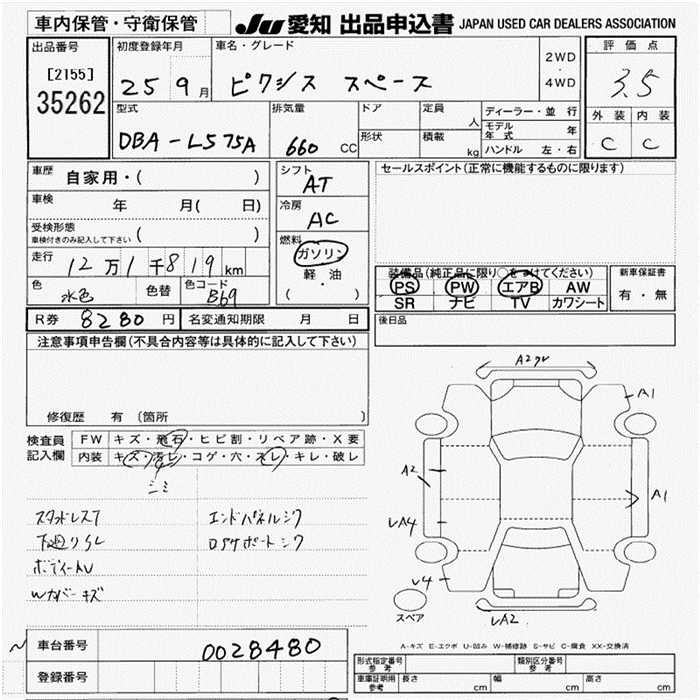 車内保管・守衛保管
JU 愛知 出品申込書 JAPAN USED CAR DEALERS ASSOCIATION
出品番号
[2155]
35262
初度登録年月
25 9月
車名・グレード
ピクシス スペース
2WD
・
4WD
評価点
3.5
外装 内装
C C
型式
DBA-L575A
排気量
660 CC
ドア
形状
定員
人
積載
kg
ディーラー・並 行
モデル年式 年
ハンドル 左・右
車歴 自家用・( )
車検 年 月( 日)
受検形態
車検付きのみ記入して下さい ( )
走行 12万1千819km
色 水色 色替 色コード B69
R券 8280円 名変通知期限 月 日
シフト
AT
冷房
AC
燃料
ガソリン
軽・油
( )
セールスポイント(正常に機能するものに限ります)
装備品(純正品に限り○をつけてください)
PS PW エアB AW
SR ナビ TV カワシート
新車保証書
有・無
後日品
注意事項申告欄(不具合内容等は具体的に記入して下さい)
修復歴 有〔箇所
検査員
記入欄
FW キズ・飛石・ヒビ割・リペア跡・X要
内装 キズ・汚レ・コゲ・穴・スレ・キレ・破レ
シミ
スタッドレスT
下廻りSL
Wカバーキズ
エンドパネルシワ
A1
A2
A1
A4
4
A2
スペア
A-キズ E-エクボ U-凹み W-補修跡 S-サビ C-腐食 XX-交換済
車台番号 0028480
登録番号
形式指定番号
参考
類別区分番号
参考
車庫証明用
参考
長さ cm 幅 cm 高さ cm